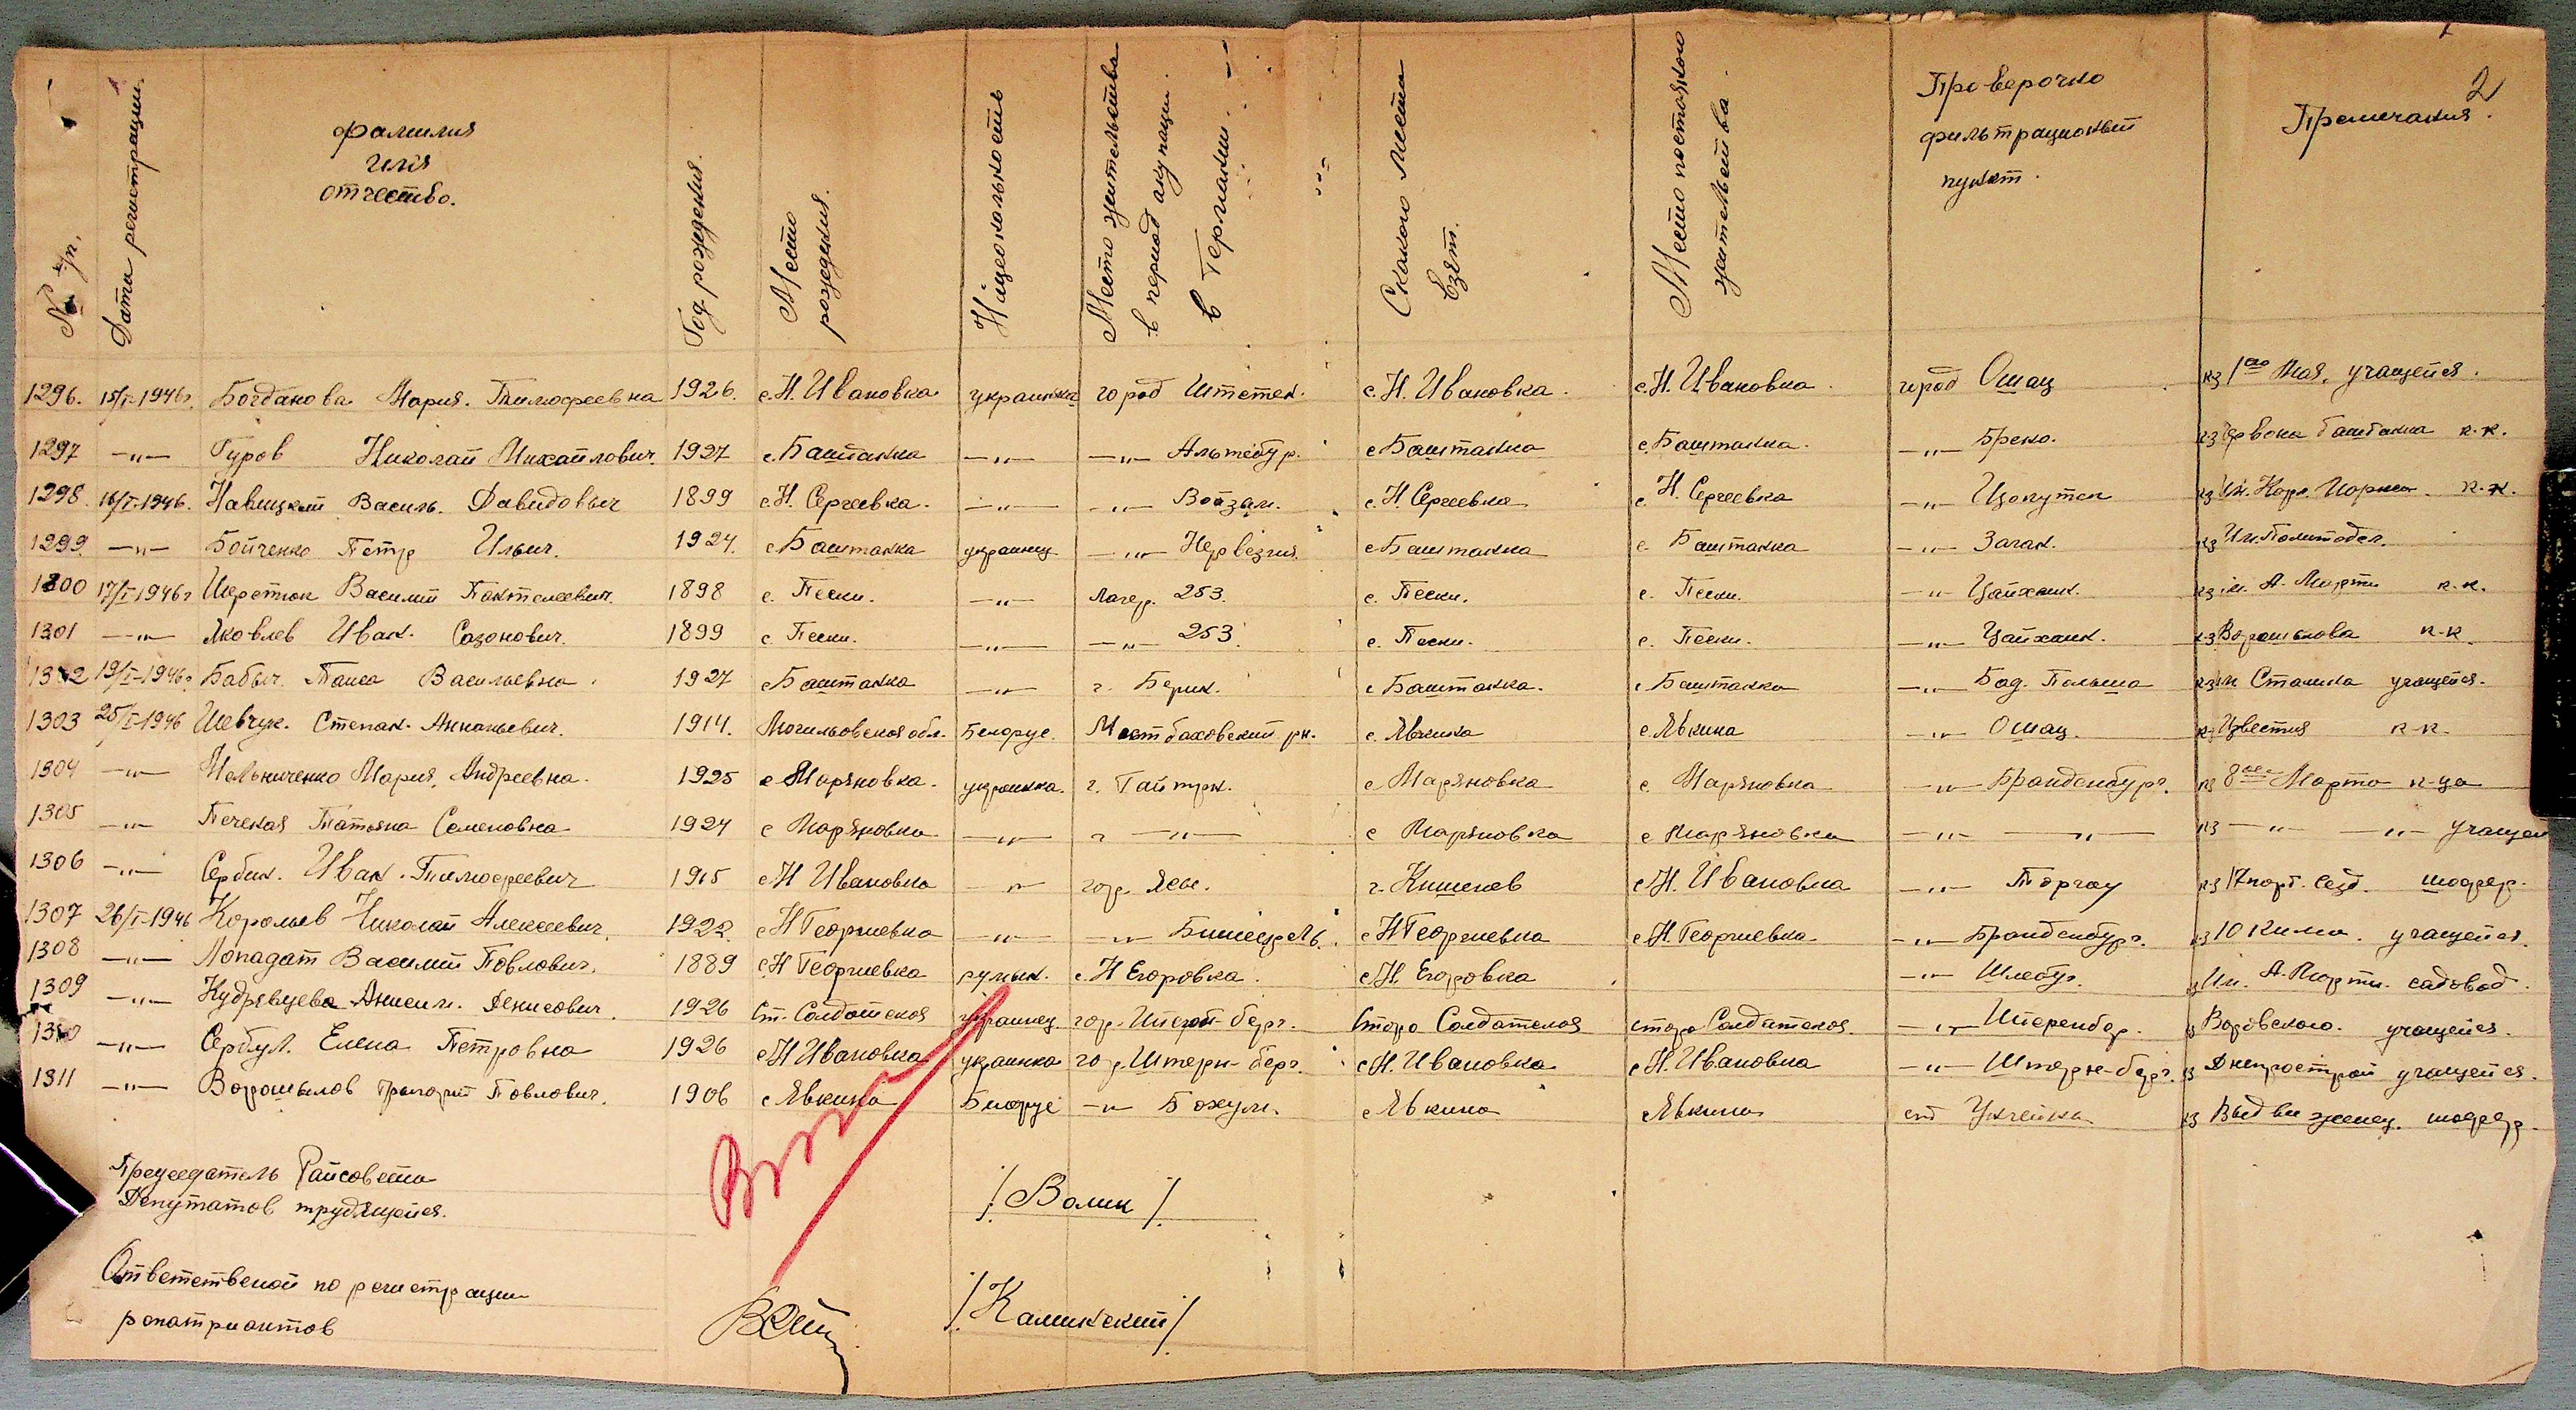 2
№ п/п.
Дата регистрации.
фамилия
имя
отчество.
Год рождения.
Место
рождения.
Национальность
Место жительства
в период окупации
в Германии.
Скакого места
взят.
Место постояного
жительства.
Проверочно
фильтрационый
пункт.
Примечания.
1296. 15/I-1946г. Богданова Мария. Тимофеевна 1926. с. Н. Ивановка украинка город Штетен. с. Н. Ивановка. с. Н. Ивановка. город Ошац кз 1го Мая, учащейся.
1297 —"— Гуров Николай Михайлович. 1927 с. Баштанка —"— —"— Альтебур. с Баштанка с. Баштанка. —"— Брено. кз Червона баштанка к.к.
1298. 16/I-1946. Навицкий Василь. Давидович 1899 с. Н. Сергеевка. —"— —"— Войзам. с. Н Сергеевка с. Н. Сергеевка —"— кз Им. Кар. Маркса. к.к.
1299. —"— Бойченко Петр Ильич. 1924. с Баштанка украинец —"— с Баштанка с. Баштанка —"— Заган. кз Им. Политодел.
1300 17/I-1946г Шереток Василий Пантелеевич. 1898 с. Пески. —"— Лагер. 253. с. Пески. с. Пески. —"— Цайханн. кз им. А. Марти к.к.
1301 —"— Яковлев Иван. Сазонович. 1899 с. Пески. —"— —"— 253. с. Пески. с. Пески. —"— Цайханн. кз Ворошилова к-к.
1302 19/I-1946г Бабыч. Таиса Васильевна. 1927 с Баштанка —"— г. Берин. с Баштанка. с Баштанка —"— Бод. Польша кз им Сталина учащейся.
1303 25/I-1946 Шевчук. Степан. Ананьевич. 1914. Могильовская обл. Белорус. Мостбаховский рн. с. Явкина с. Явкина —"— Ошац. кз Известия к-к.
1304 —"— Мельниченко Мария, Андреевна. 1925 с Марьяновка. украинка. г. Гайтурн. с Марьяновка с. Марьяновка —"— Бранденбург. кз 8ое Марта к-ца
1305 —"— Печеная Татьяна Семеновна 1924 с Марьяновка —"— г —"— с Марьяновка с Марьяновка —"— —"— кз —"— —"— учащей
1306 —"— Сербин. Иван. Тимофеевич 1915 с Н Ивановка —"— гор. Ясы. г. Кишенев с Н. Ивановка —"— Торгау кз 17 парт. сезд. шофер.
1307 26/I-1946 Корольев Николай Алексеевич. 1922. с Н Георгиевка —"— —"— с Н Георгиевка с Н. Георгиевка —"— Бранденбург. кз 10 Кима. учащейся.
1308 —"— Лопадат Василий Повлович. 1889 с Н Георгиевка румын. с. Н Егоровка. с Н. Егоровка —"— Шлебуг. кз Им. А. Марти. садовод.
1309 —"— Кудрявцева Анисим. Денисович. 1926 Ст. Солдатская украинец. гор. Штерн-берг. Старо Солдатская старо Солдатская. —"— Штеренбор. кз Воровского. учащейся.
1310 —"— Сербул. Елена Петровна 1926 с Н Ивановка украинка гор. Штерн-берг. с Н. Ивановка с Н. Ивановка —"— Штерн-берг. кз Днепрострой учащейся.
1311 —"— Ворошылов Григорий Повлович. 1906 с Явкина Белорус —"— Бохум. с Явкина Явкина кз Выдвиженец. шофер.
Председатель Райсовета
Депутатов трудящейся.
/Волик/
Ответственой по регистрации
ропатриантов
/Калинский/